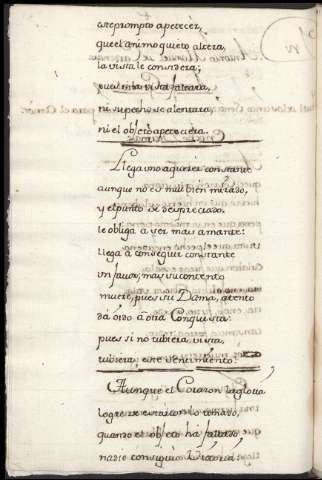 este prompto apetecer,
que el animo quieto altera,
la vista le considera;
pues si la vista faltara,
ni su pecho se alentara,
ni el objeto apeteciera.
Llega uno a querer constante
aunque no es mui bien mirado,
y el punto de despreciado,
le obliga a ser mas amante:
llega a conseguir constante
un favor, mas su contento
muere, pues su Dama, atento
dà oido à otra Conquista:
pues si no tubiera vista,
tubiera este sentimiento.
Aunque el Corazon la gloria
logre de estar con lo amado,
quando el objeto ha faltado
nadie consiguiò Victoria: